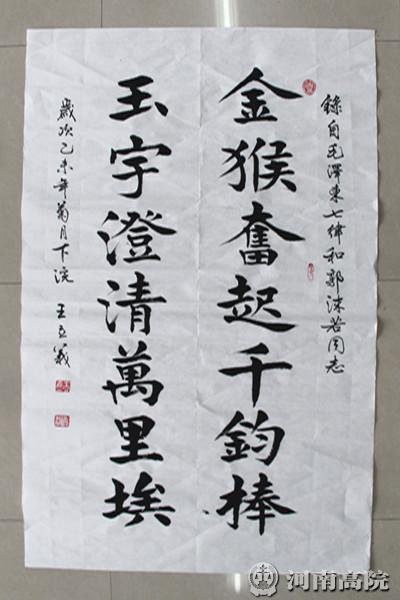 錄自毛澤東七律和郭沫若同志
金猴奮起千鈞棒
玉宇澄清萬里埃
歲次乙未年菊月下浣
王立義
河南高院